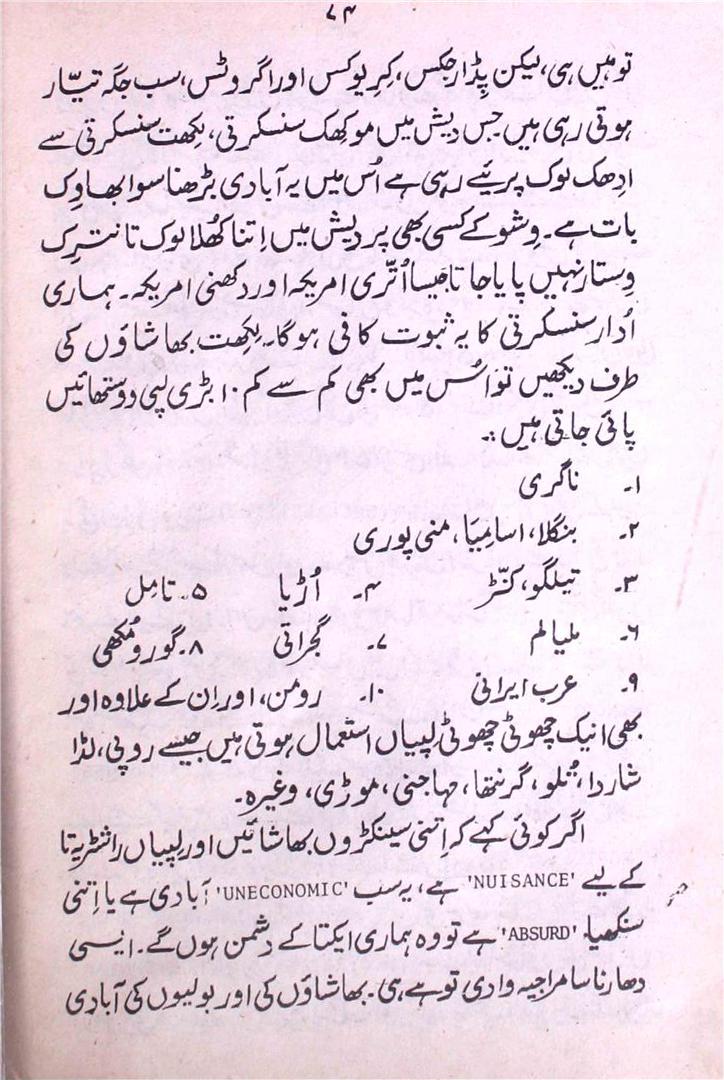 ۷۴
تو ہیں ہی، لیکن پڈارجکس، کریوکس اور اگروٹس، سب جگہ تیّار
ہوتی رہی ہیں جس دیش میں موکھک سنسکرتی، لکھت سنسکرتی سے
ادھک لوک پریئے رہی ہے اُس میں یہ آبادی بڑھنا سوابھاوِک
بات ہے۔ وِشو کے کسی بھی پردیش میں اِتنا کھُلا لوک تانترِک
وِستار نہیں پایا جاتا جیسا اُتّری امریکہ اور دکھنی امریکہ۔ ہماری
اُدار سنسکرتی کا یہ ثبوت کافی ہوگا۔ لِکھت بھاشاؤں کی
طرف دیکھیں تو اُس میں بھی کم سے کم ۱۰ بڑی لپی ووستھائیں
پائی جاتی ہیں :۔
۱۔ ناگری
۲۔ بنگلا، اسامِیَا، منی پوری
۳۔ تیلگو، کنّڑ ۴۔ اُڑیا ۵۔ تامِل
۶۔ ملیالم ۷۔ گجراتی ۸۔ گورومُکھی
۹۔ عرب ایرانی ۱۰۔ رومن، اور اِن کے علاوہ اور
بھی انیک چھوٹی چھوٹی لپیاں استعمال ہوتی ہیں جیسے روپی، لڈا
شاردا، تُلو، گرنتھا، مہاجنی، موڑی، وغیرہ۔
اگر کوئی کہے کہ اتنی سینکڑوں بھاشائیں اور لپیاں راشٹریہ تا
کے لیے 'NUISANCE' ہے، یہ سب 'UNECONOMIC' آبادی ہے یا اِتنی
سنکھیا 'ABSURD' ہے تو وہ ہماری ایکتا کے دشمن ہوں گے۔ ایسی
دھارنا سامراجیہ وادی تو ہے ہی۔ بھاشاؤں کی اور بولیوں کی آبادی